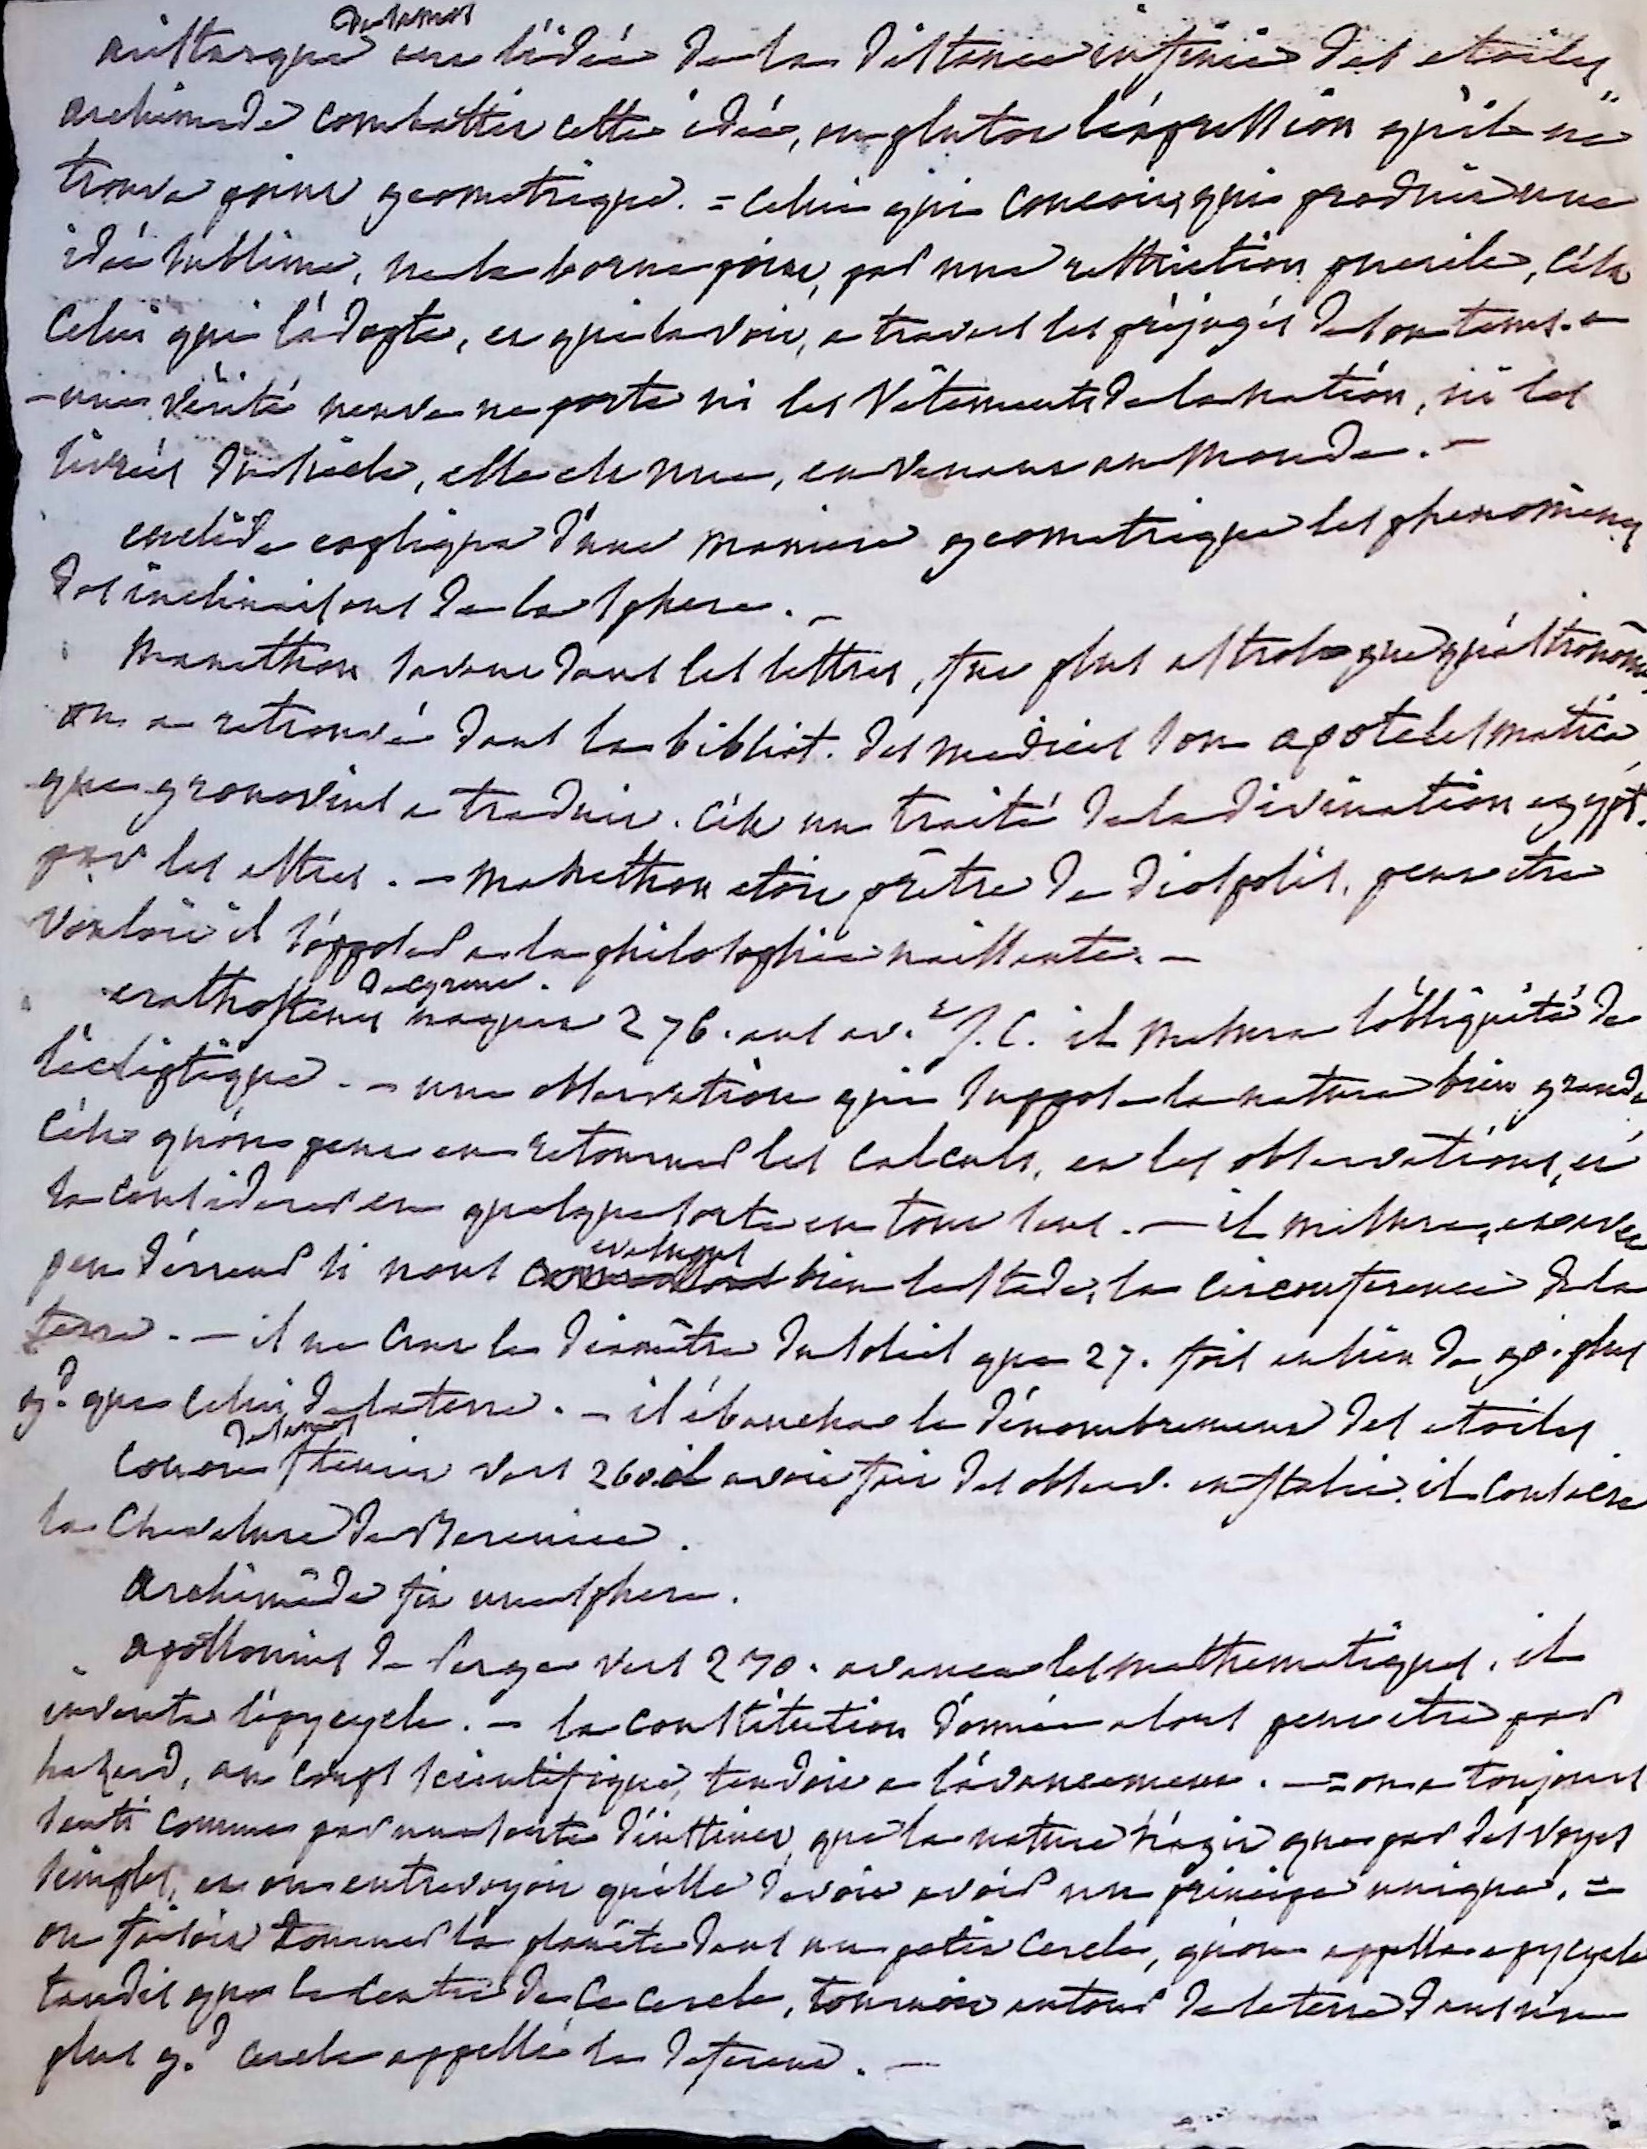 de samos
aristarque eut l'idée de la distance infinie des etoiles
archimede combattit cette idée, ou plutot l'expression qu'il ne
trouva point geometrique. = celui qui concoit, qui produit une
idée sublime, ne la borne point, par une restriction puerile, c'est
celui qui l'adopte, et qui la voit, a travers les préjugés de son tems. =
– une vérité neuve ne porte ni les vêtements de la nation, ni les
livrées du siècle, elle est nue, en venant au monde. –
euclide expliqua d'une maniere geometrique les phenomenes
des inclinaisons de la sphere. –
manethon savant dans les lettres, fut plus astrologue qu'astronome,
on a retrouvé dans la bibliot. des medicis son apotelesmatica,
que gronovius a traduit. c'est un traité de la divination egypt.
par les astres. – manethon etoit prêtre de diospolis, peut etre
vouloit il s'opposer a la philosophie naissante. –
de cyrene.
erathostenes naquit 276. ans av. J. C. il mesura l'obliquité de
l'écliptique. – une observation qui suppose la nature bien grande
c'est qu'on peut en retourner les calculs, et les observations, et
la considerer en quelque sorte en tout sens. – il mesura, et avec
peu d'erreur si nous evaluons bien le stade, la circonference de la
terre. – il ne crut le diamètre du soleil que 27. fois au lieu de 90. plus
gd. que celui de la terre. – il ébaucha le dénombrement des etoiles
de samos
conon fleurit vers 260. il avoit fait des observ. en Italie. il consacra
la chevelure de Berenice.
archimède fit une sphere.
apollonius de Perge vers 240. avanca les mathematiques. il
inventa l'épycycle. – la constitution donnée alors peut etre par
hazard, au corps scientifique, tendoit a l'avancement. – = on a toujours
senti comme par une sorte d'instinct, que la nature n'agit que par des voyes
simples, et on entrevoyoit qu'elle devoit avoir un principe unique. =
on faisoit tourner la planète dans un petit cercle, qu'on appella epycycle
tandis que le centre de ce cercle, tournoit autour de la terre dans un
plus gd. cercle appellé le deferent. –